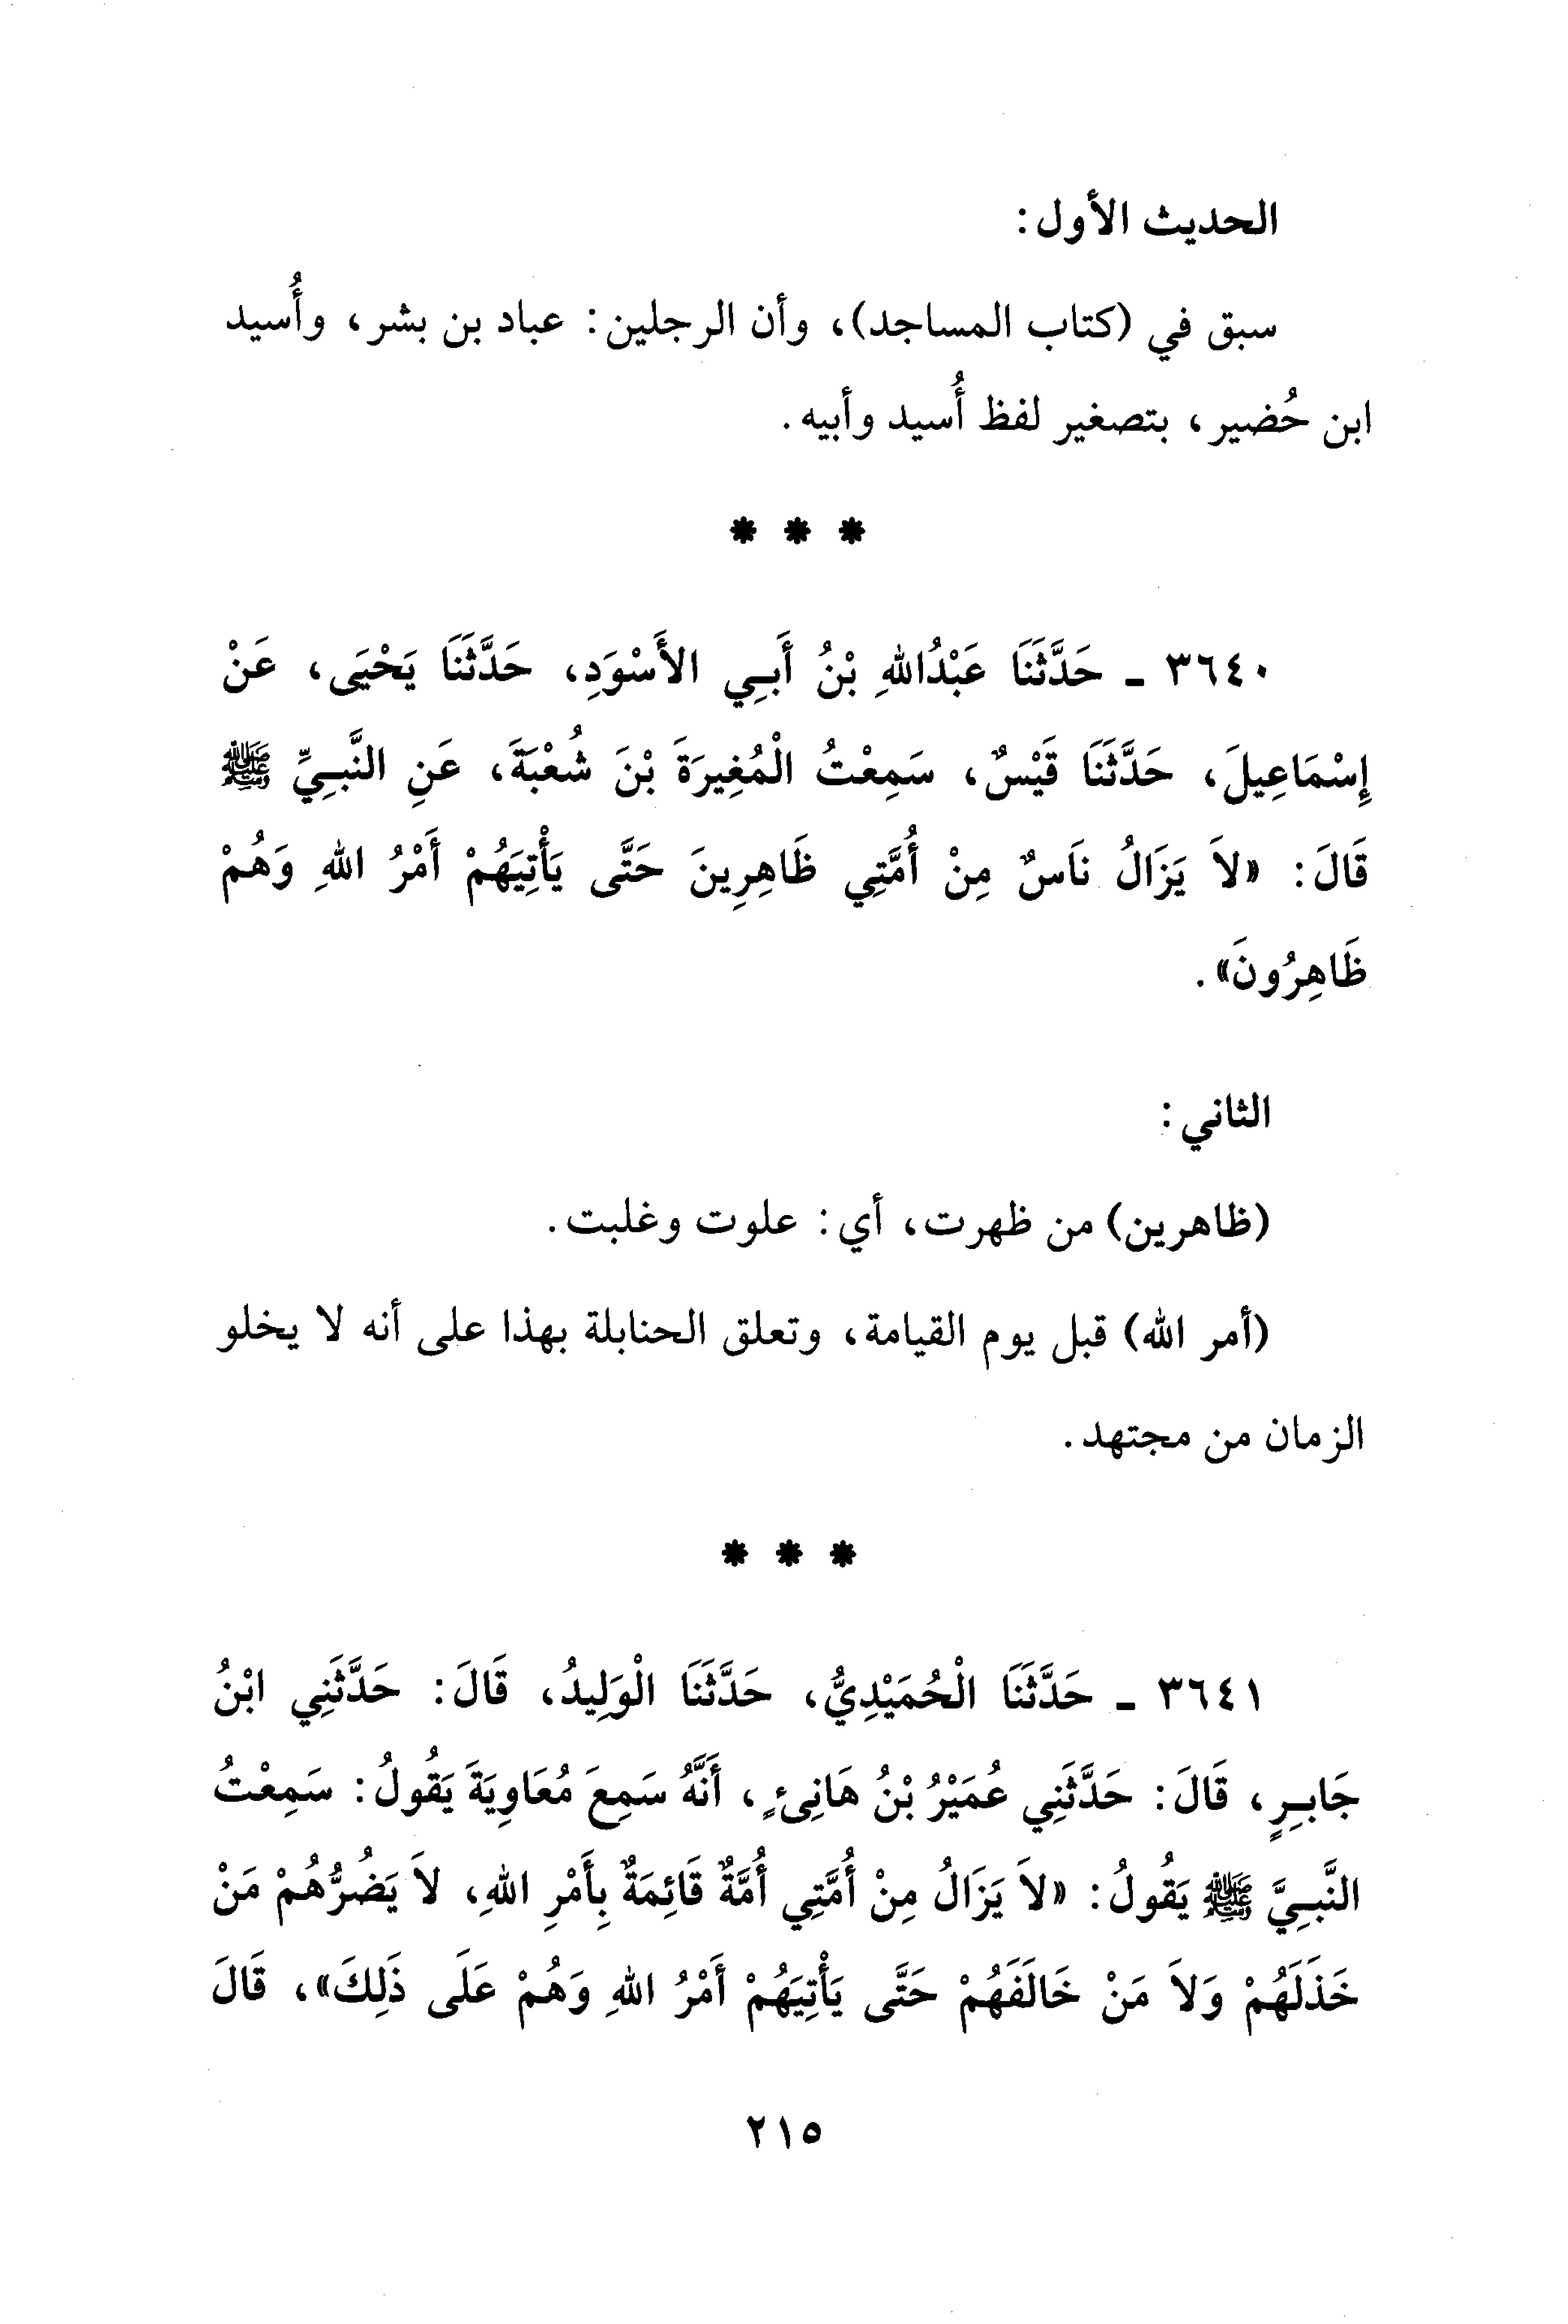 الحديث الأول:
سبق في (كتاب المساجد)، وأن الرجلين: عباد بن بشر، وأُسيد
ابن حُضير، بتصغير لفظ أُسيد وأبيه.
* * *
٣٦٤٠ ـ حَدَّثَنَا عَبْدُاللهِ بْنُ أَبِي الأَسْوَدِ، حَدَّثَنَا يَحْيَى، عَنْ
إِسْمَاعِيلَ، حَدَّثَنَا قَيْسٌ، سَمِعْتُ الْمُغِيرَةَ بْنَ شُعْبَةَ، عَنِ النَّبِيِّ ﷺ
قَالَ: «لاَ يَزَالُ نَاسٌ مِنْ أُمَّتِي ظَاهِرِينَ حَتَّى يَأْتِيَهُمْ أَمْرُ اللهِ وَهُمْ
ظَاهِرُونَ».
الثاني:
(ظاهرين) من ظهرت، أي: علوت وغلبت.
(أمر الله) قبل يوم القيامة، وتعلق الحنابلة بهذا على أنه لا يخلو
الزمان من مجتهد.
* * *
٣٦٤١ ـ حَدَّثَنَا الْحُمَيْدِيُّ، حَدَّثَنَا الْوَلِيدُ، قَالَ: حَدَّثَنِي ابْنُ
جَابِرٍ، قَالَ: حَدَّثَنِي عُمَيْرُ بْنُ هَانِئٍ، أَنَّهُ سَمِعَ مُعَاوِيَةَ يَقُولُ: سَمِعْتُ
النَّبِيَّ ﷺ يَقُولُ: «لاَ يَزَالُ مِنْ أُمَّتِي أُمَّةٌ قَائِمَةٌ بِأَمْرِ اللهِ، لاَ يَضُرُّهُمْ مَنْ
خَذَلَهُمْ وَلاَ مَنْ خَالَفَهُمْ حَتَّى يَأْتِيَهُمْ أَمْرُ اللهِ وَهُمْ عَلَى ذَلِكَ»، قَالَ
٢١٥